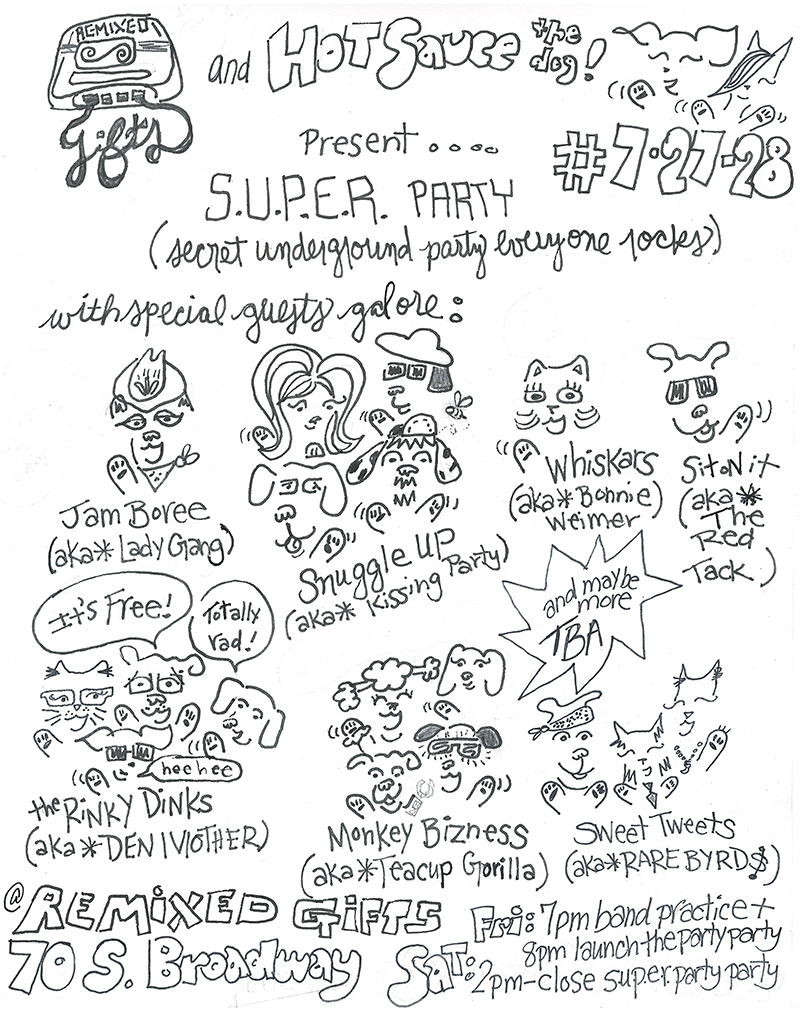 REMIXED
gifts
and HOT Sauce the dog!
Present....
#7·27-28
S.U.P.E.R. PARTY
(secret underground party everyone rocks)
with special guests galore:
Jam Boree
(aka* Lady Gang)
Snuggle UP
(aka* Kissing Party)
Whiskars
(aka* Bonnie Weimer)
Sit on it
(aka*
The
Red
Tack)
It's Free!
Totally
rad!
and maybe
more
TBA
hee hee
the RINKY DINKS
(aka* DEN MOTHER)
Monkey Bizness
(aka* Teacup Gorilla)
Sweet Tweets
(aka* RARE BYRD$)
@REMIXED GIFTS
70 S. Broadway
Fri: 7pm band practice +
8pm launch-the party party
SAT: 2pm-close s.u.p.e.r. party party